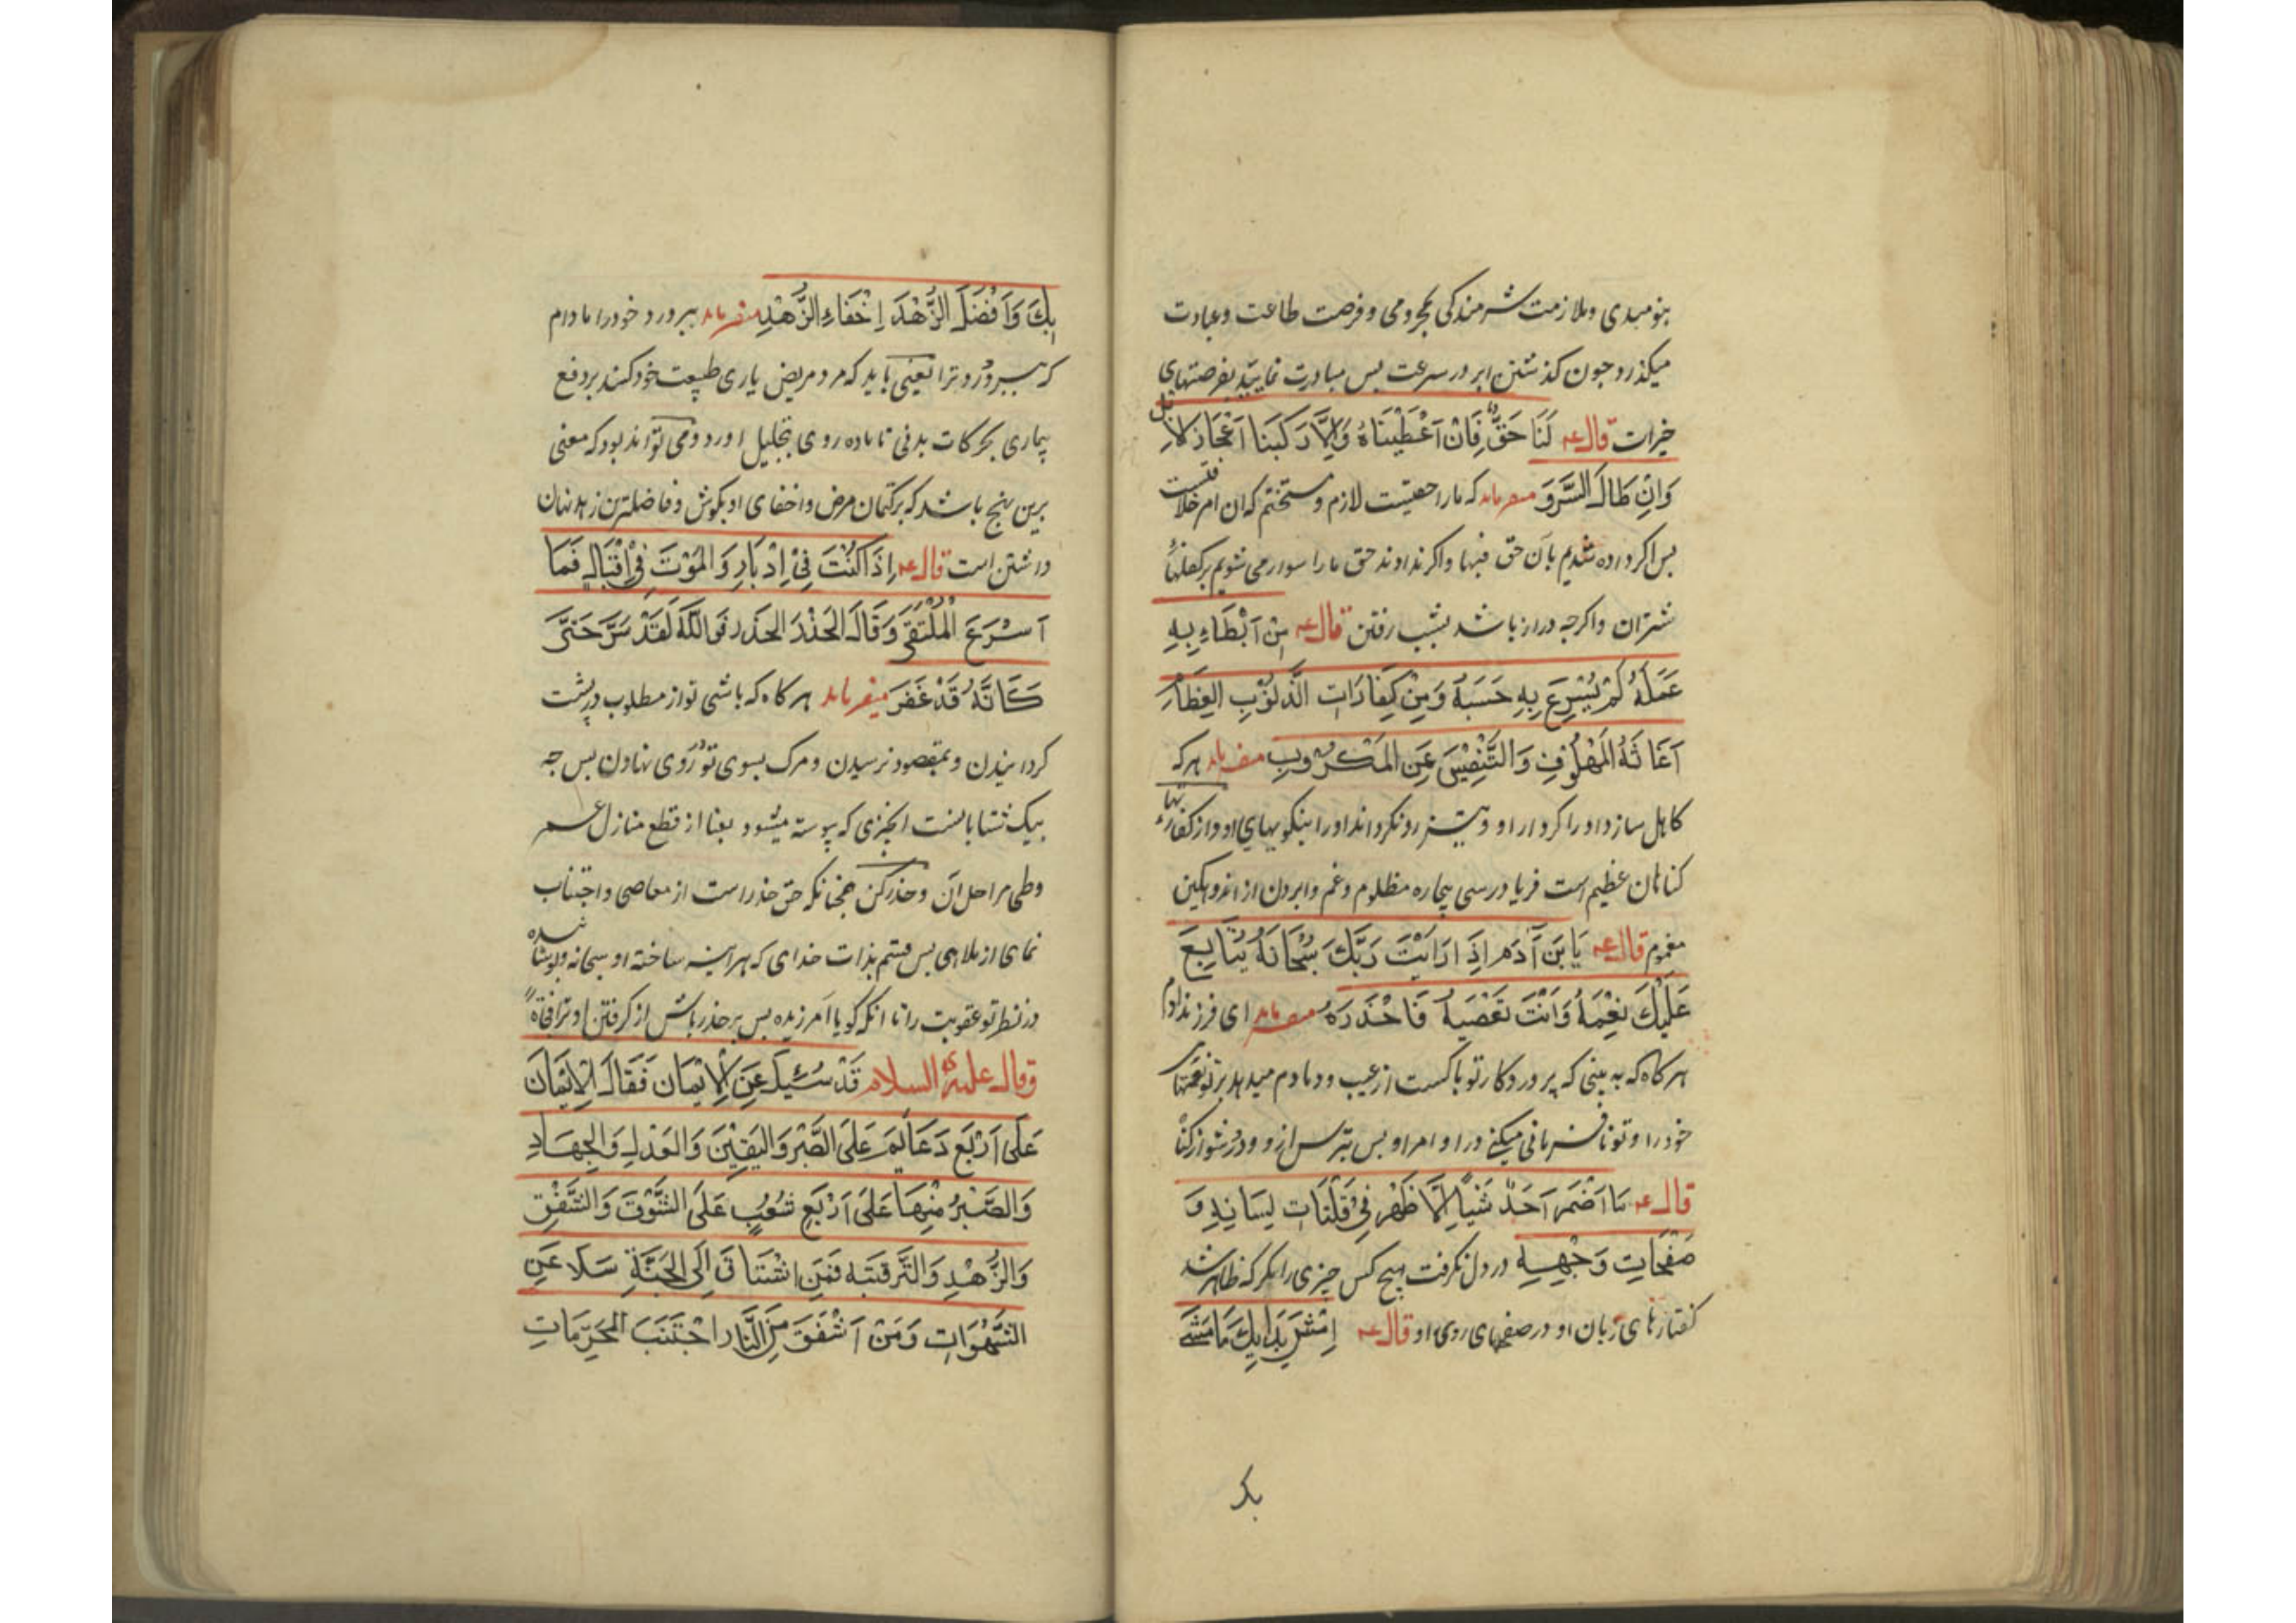 بنومیدی و ملازمت شرمندکی بمحرومی و فرصت طاعت و عبادت
میکذرد جون کذشتن ابر در سرعت بس مبادرت نمایید بفرصتهای
خیرات قال عه لَنَا حَقٌّ فَاِنْ اَعْطَیْنَاهُ وَاِلَّا رَکِبْنَا اَعْجَازَ الاِبل
وَاِنْ طَالَ السَّرَوَ میفرماید که مارا حقیست لازم و متحتم که ان امر خلافتست
بس اکر داده شدیم بآن حق فبها و اکر نداوند حق مارا سوار می شویم بر کفلهای
شتران و اکرجه دراز باشد بشب رفتن قال عه مِنْ اَبْطَاءِ بِهِ
عَمَلَهُ لَمْ یُسْرِعَ بِهِ حَسَبَهُ وَمِنْ کِفَارَاتِ الذُّلُوْبِ العِظَاْرِ
اَغَاثَهُ المَهْلُوْفِ وَالتَّنْفِیْسَ عَنِ المَکْرُوبِ میفرماید هر که
کاهل سازد اورا کردار او و نیز رو نکرداند اورا بنکوییهای او و از کفارتهاء
کناهان عظیم است فریاد رسی بیچاره مظلوم و غم وابردن از اندوهکین
مغموم قال عه یَابْنَ آدَمَ اِذَا رَاَیْتَ رَبَّکَ سُبْحَانَهُ یُتَابِعَ
عَلَیْکَ نِعْمَهُ وَاَنْتَ تَعْصَیهُ فَاحْذَرَهُ میفرماید ای فرزند ادم
هر کاه که به بینی که پروردکار تو باکست از عیب و دمادم میدهد بر تو نعمتهای
خود را و تو نافرمانی میکنی در اوامر او بس بترس ازو و دور شو از کناه
قال عه مَا اَضْمَرَ اَحَدٌ شَیْئًا اِلَّا ظَهْرَ فِی فَلْتَاتِ لِسَانِهِ وَ
صَفْحَاتِ وَجْهِهِ در دل نکرفت هیچ کس چیزی را مکر که ظاهر شد
کفتارهای زبان او در صفحهای روی او قال عه اِمْشِ بِدَایِکَ مَا مَشَیَ
بک
بِکَ وَاَفْضَلَ الزُّهْدَ اِخْفَاءِ الزُّهْدِ میفرماید ببر درد خود را مادام
که ببرد درد ترا یعنی باید که مرد مریض یاری طبیعت خود کند بر دفع
بیماری بحرکات بدنی تا ماده روی بتحلیل اورد و می تواند بود که معنی
برین نهج باشد که بر کتمان مرض و اخفای او بکوش و فاضلترین زهد نهان
داشتن است قال عه اِذَا کُنْتَ فِیْ اِدْبَارِ وَالْمَوْتَ فِیْ اِقْبَالِ فَمَا
اَسْرَعَ الْمُلْتَقَی وَقَالَ الحَذْرَ الحَذَرَ فَوَاللَّهَ لَقَدْ سَتَّرَ حَتَّی
کَاَنَّهُ قَدْ غَفَرَ میفرماید هر کاه که باشی تو از مطلوب در پشت
کردانیدن و بمقصود نرسیدن و مرک بسوی تو روی نهادن بس جه
بیک شتابانست انچیزی که پیوسته میشود بفنا از قطع منازل عمر
و طی مراحل آن و حذر کن همجنانکه حق حذر است از معاصی و اجتناب
نمای از ملاهی بس قسم بذات خدای که هر آینه ساخته او سبحانه و پوشانیده
در نظر تو عقوبت را تا انکه کویا آمرزیده بس بر حذر باش از کرفتن او ترا فجاةً
وَقال علیه السلام قَدْ سُئِلَ عَنِ الْاِیْمَان فَقَالَ الْاِیْمَان
عَلَی اَرْبَعَ دَعَایِمَ عَلَی الصَّبْرِ وَالیَقِیْنَ وَالعَدْلِ وَالجِهَادِ
وَالصَّبْرُ مِنْهَا عَلَی اَرْبَعِ شُعَبٍ عَلَی الشَّوْقَ وَالشَّفْقِ
وَالزُّهْدِ وَالتَّرَقبَبه فَمَنِ اشْتَاقَ اِلَی الجَنَّةِ سَلَا عَنِ
الشَّهْوَاتِ وَمَنْ اَشْفَقَ مِنَ النَّارِ اجْتَنَبَ المُحَرَّمَاتِ